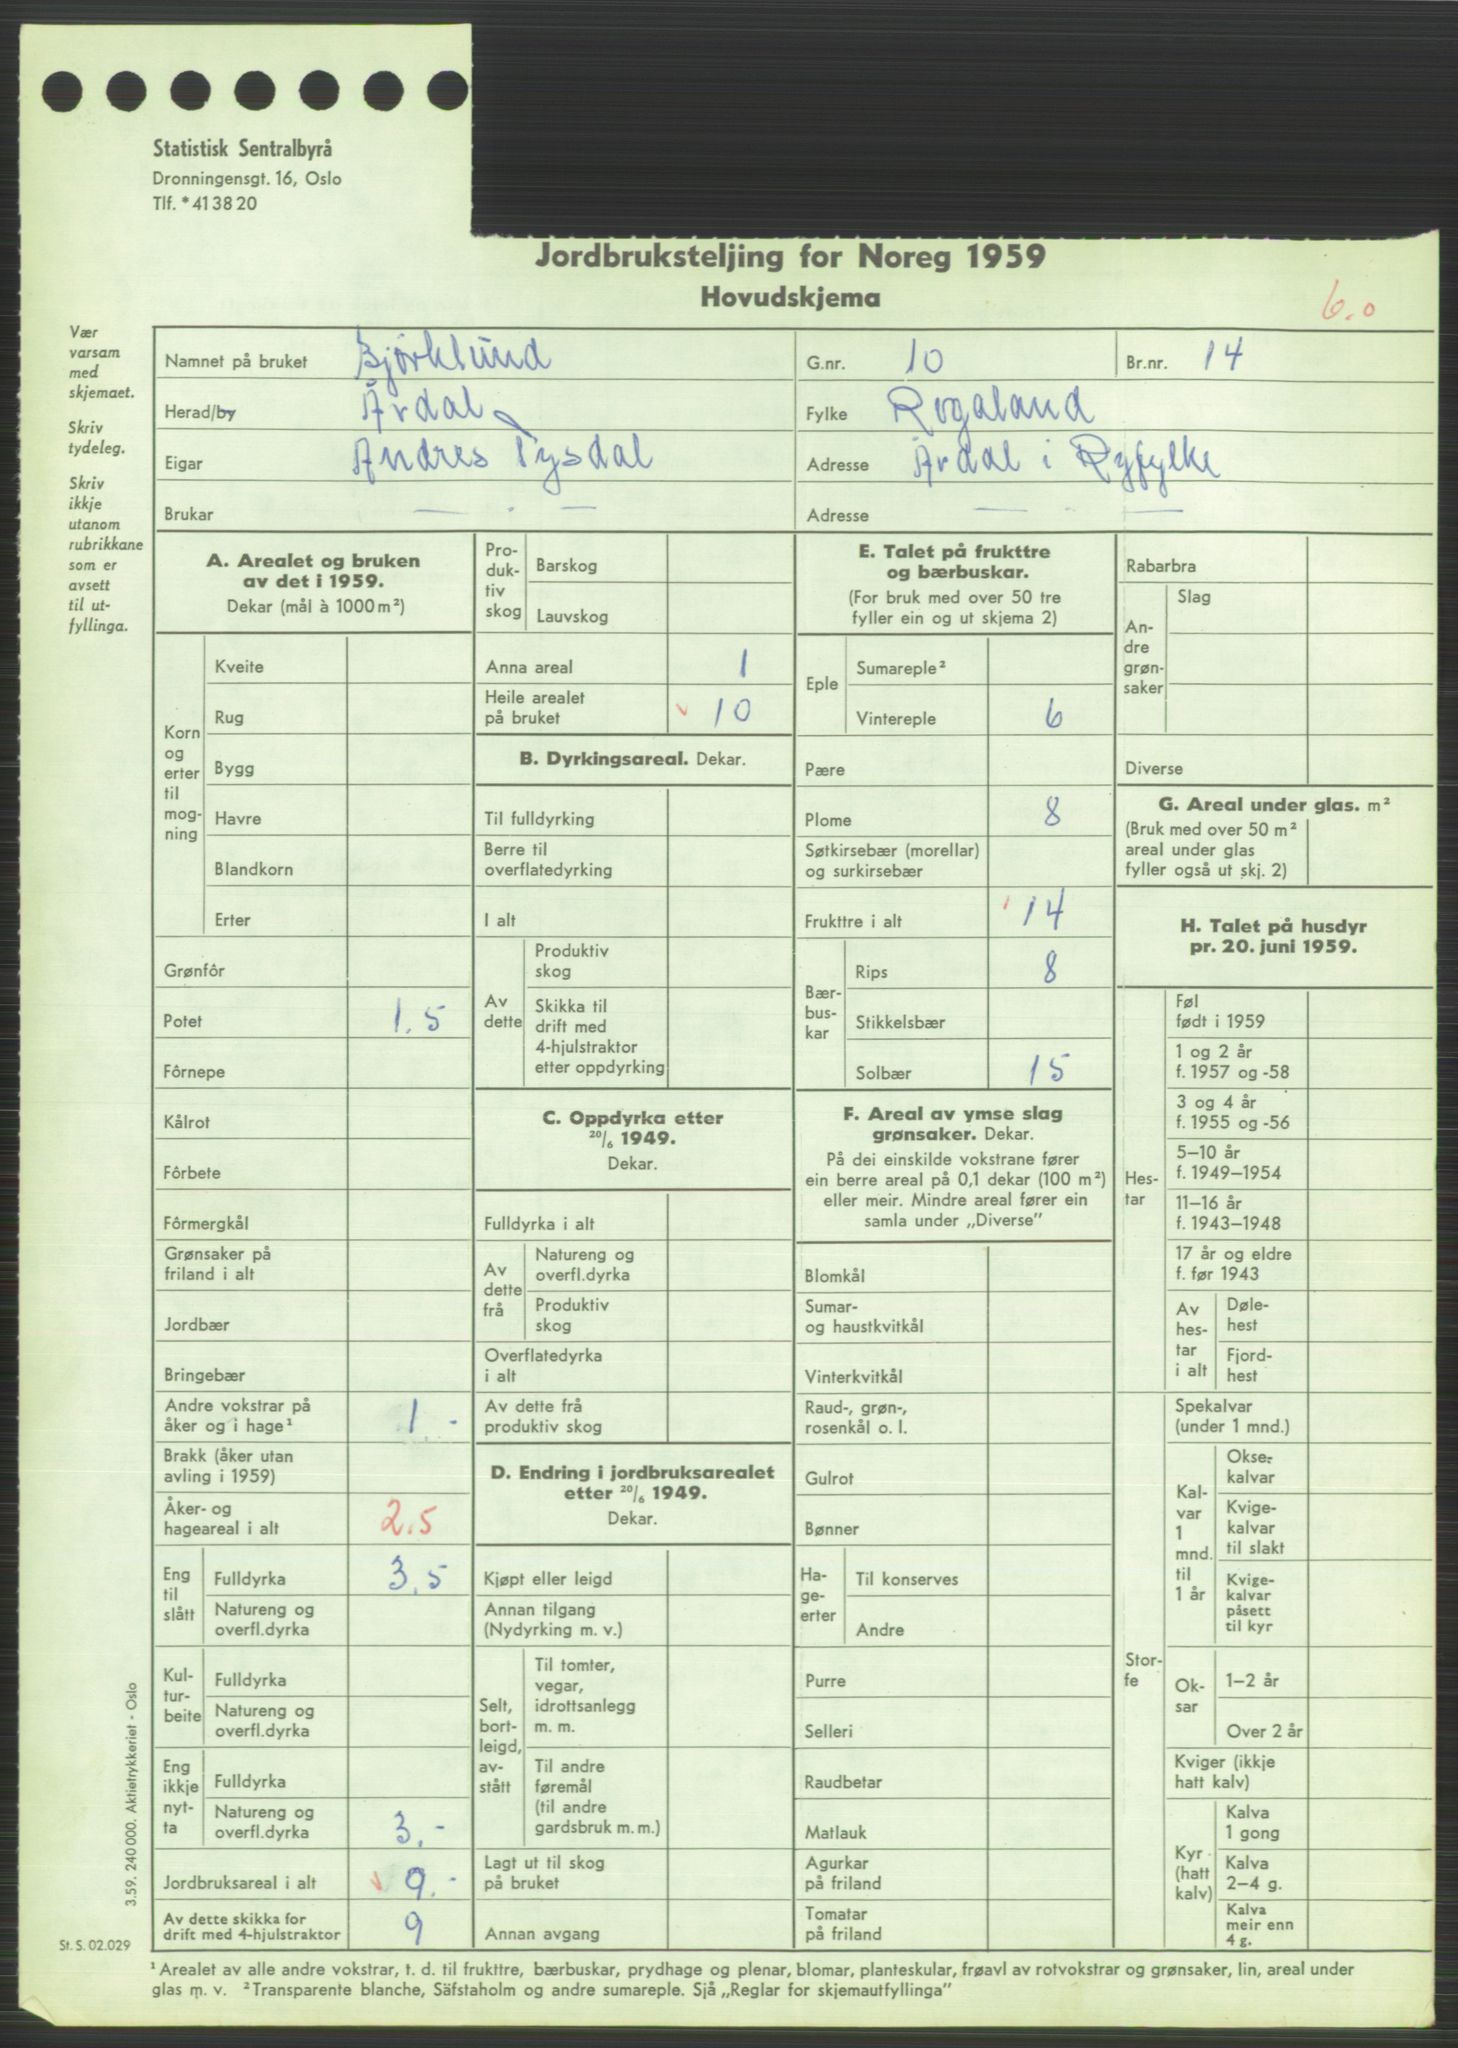 Statistisk Sentralbyrå
Dronningensgt. 16, Oslo
Tlf. *41 38 20
Jordbruksteljing for Noreg 1959
Hovudskjema
6.0
Vær
varsam
med
skjemaet.
Skriv
tydeleg.
Skriv
ikkje
utanom
rubrikkane
som er
avsett
til ut-
fyllinga.
Namnet på bruket Bjørklund G.nr. 10 Br.nr. 14
Herad/by Årdal Fylke Rogaland
Eigar Andres Tysdal Adresse Årdal i Ryfylke
Brukar — . — Adresse — . —
A. Arealet og bruken
av det i 1959.
Dekar (mål à 1000 m²)
Korn
og
erter
til
mog-
ning
Kveite
Rug
Bygg
Havre
Blandkorn
Erter
Grønfôr
Potet 1.5
Fôrnepe
Kålrot
Fôrbete
Fôrmergkål
Grønsaker på
friland i alt
Jordbær
Bringebær
Andre vokstrar på
åker og i hage¹ 1.-
Brakk (åker utan
avling i 1959)
Åker- og
hageareal i alt 2.5
Eng
til
slått
Fulldyrka 3.5
Natureng og
overfl.dyrka
Kul-
tur-
beite
Fulldyrka
Natureng og
overfl.dyrka
Eng
ikkje
nyt-
ta
Fulldyrka
Natureng og
overfl.dyrka 3.-
Jordbruksareal i alt 9.-
Av dette skikka for
drift med 4-hjulstraktor 9
Pro-
duk-
tiv
skog
Barskog
Lauvskog
Anna areal 1
Heile arealet
på bruket 10
B. Dyrkingsareal. Dekar.
Til fulldyrking
Berre til
overflatedyrking
I alt
Av
dette
Produktiv
skog
Skikka til
drift med
4-hjulstraktor
etter oppdyrking
C. Oppdyrka etter
20/6 1949.
Dekar.
Fulldyrka i alt
Av
dette
frå
Natureng og
overfl.dyrka
Produktiv
skog
Overflatedyrka
i alt
Av dette frå
produktiv skog
D. Endring i jordbruksarealet
etter 20/6 1949.
Dekar.
Kjøpt eller leigd
Annan tilgang
(Nydyrking m. v.)
Selt,
bort-
leigd,
av-
stått
Til tomter,
vegar,
idrottsanlegg
m. m.
Til andre
føremål
(til andre
gardsbruk m. m.)
Lagt ut til skog
på bruket
Annan avgang
E. Talet på frukttre
og bærbuskar.
(For bruk med over 50 tre
fyller ein og ut skjema 2)
Eple
Sumareple²
Vintereple 6
Pære
Plome 8
Søtkirsebær (morellar)
og surkirsebær
Frukttre i alt 14
Bær-
bus-
kar
Rips 8
Stikkelsbær
Solbær 15
F. Areal av ymse slag
grønsaker. Dekar.
På dei einskilde vokstrane fører
ein berre areal på 0,1 dekar (100 m²)
eller meir. Mindre areal fører ein
samla under „Diverse”
Blomkål
Sumar-
og haustkvitkål
Vinterkvitkål
Raud-, grøn-,
rosenkål o. l.
Gulrot
Bønner
Ha-
ge-
erter
Til konserves
Andre
Purre
Selleri
Raudbetar
Matlauk
Agurkar
på friland
Tomatar
på friland
Rabarbra
An-
dre
grøn-
saker
Slag
Diverse
G. Areal under glas. m²
(Bruk med over 50 m²
areal under glas
fyller også ut skj. 2)
H. Talet på husdyr
pr. 20. juni 1959.
Hes-
tar
Føl
født i 1959
1 og 2 år
f. 1957 og -58
3 og 4 år
f. 1955 og -56
5–10 år
f. 1949–1954
11–16 år
f. 1943–1948
17 år og eldre
f. før 1943
Av
hes-
tar
i alt
Døle-
hest
Fjord-
hest
Stor-
fe
Spekalvar
(under 1 mnd.)
Kal-
var
1
mnd.
til
1 år
Okse-
kalvar
Kvige-
kalvar
til slakt
Kvige-
kalvar
påsett
til kyr
Ok-
sar
1–2 år
Over 2 år
Kviger (ikkje
hatt kalv)
Kyr
(hatt
kalv)
Kalva
1 gong
Kalva
2–4 g.
Kalva
meir enn
4 g.
3.59. 240 000. Aktietrykkeriet - Oslo
St. S. 02.029
¹ Arealet av alle andre vokstrar, t. d. til frukttre, bærbuskar, prydhage og plenar, blomar, planteskular, frøavl av rotvokstrar og grønsaker, lin, areal under
glas m. v. ² Transparente blanche, Säfstaholm og andre sumareple. Sjå „Reglar for skjemautfyllinga”